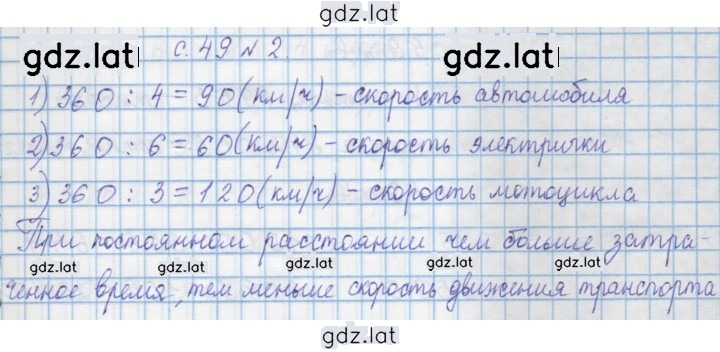 gdz.lat
gdz.lat
с. 49 № 2.
1) 360 : 4 = 90 (км/ч) - скорость автомобиля
2) 360 : 6 = 60 (км/ч) - скорость электрички
3) 360 : 3 = 120 (км/ч) - скорость мотоцикла
При постоянном расстоянии чем больше затра-
gdz.lat gdz.lat gdz.lat gdz.lat gdz.lat
ченное время, тем меньше скорость движения транспорта
gdz.lat